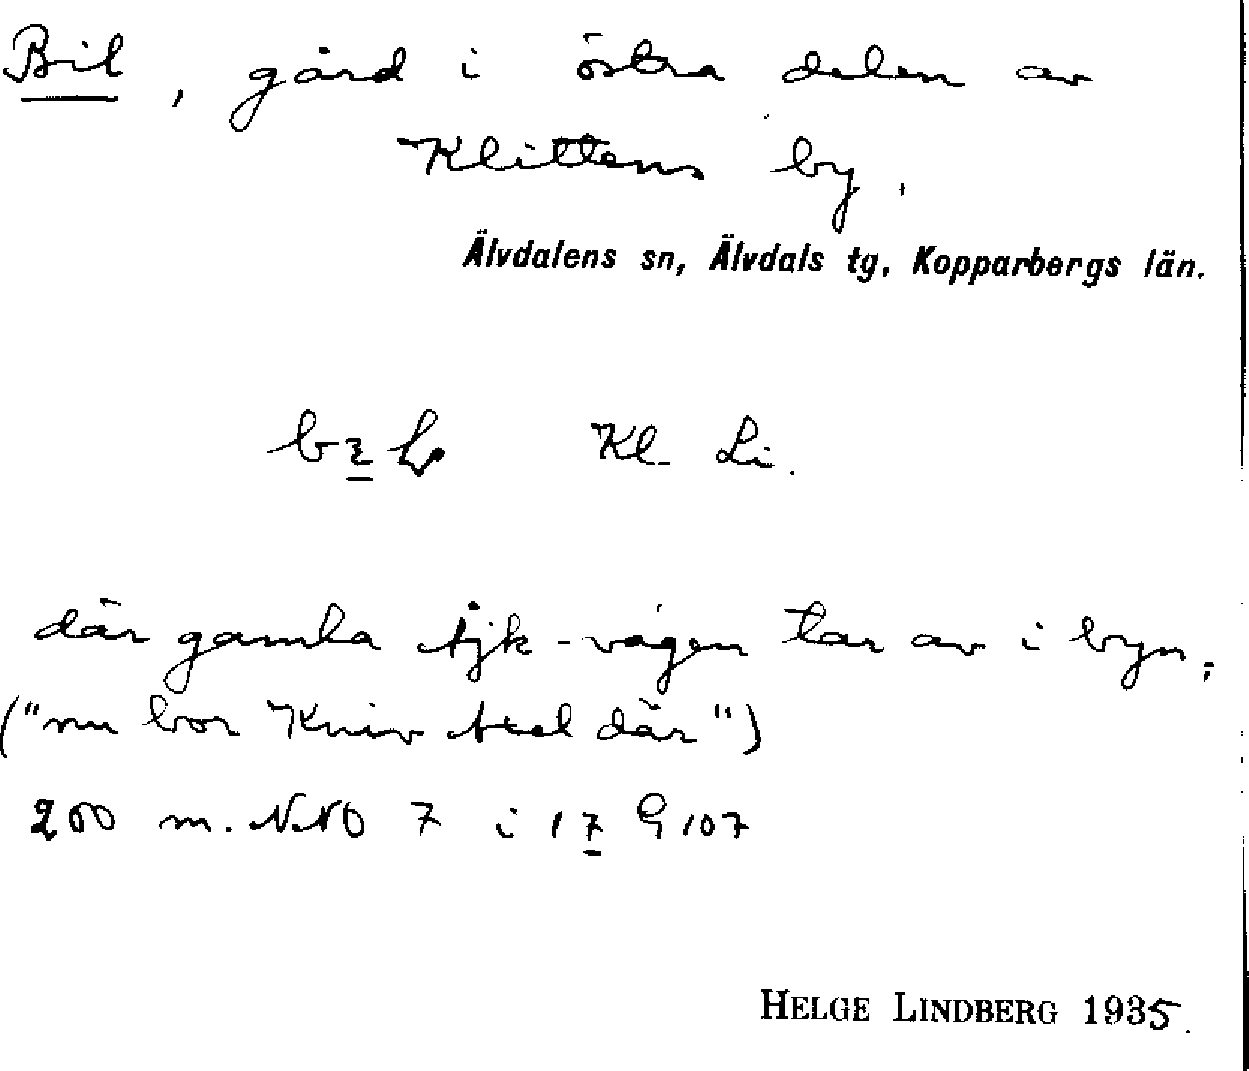 Bil, gård i östra delen av
Klittens by.
Älvdalens sn, Älvdals tg, Kopparbergs län.
Kl. Li.
där gamla åjk-vägen tar av i byn,
("nu bor Kniv Axel där")
200 m. NNO 7 i 17 G 107
HELGE LINDBERG 1935.